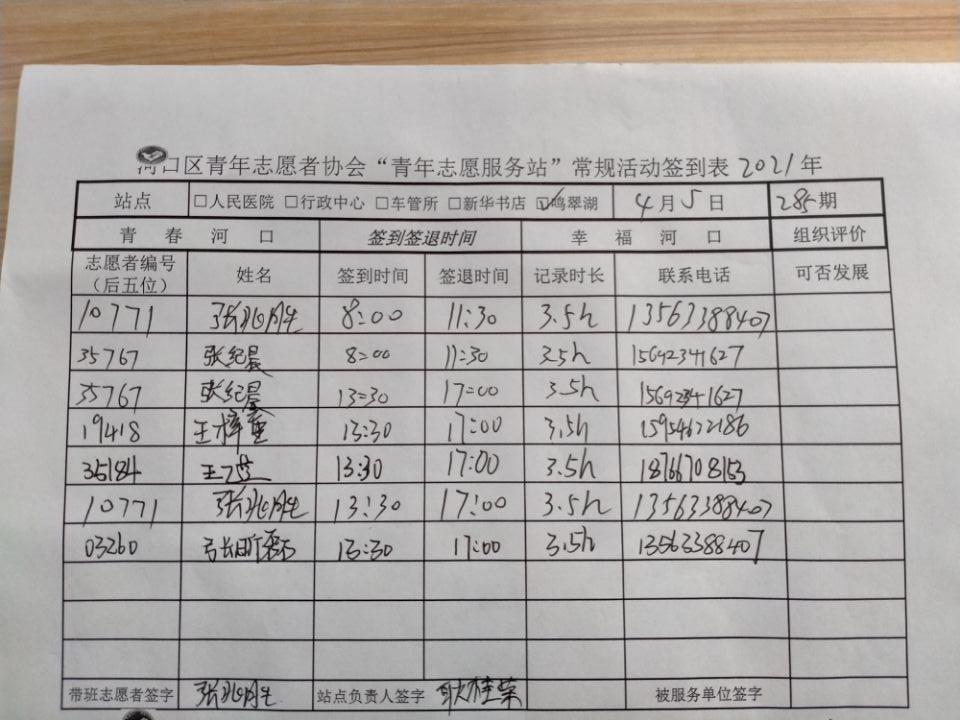 河口区青年志愿者协会“青年志愿服务站”常规活动签到表 2021年
站点 □人民医院 □行政中心 □车管所 □新华书店 ☑鸣翠湖 4月5日 285期
青春河口 签到签退时间 幸福河口 组织评价
志愿者编号（后五位） 姓名 签到时间 签退时间 记录时长 联系电话 可否发展
10771 张兆胜 8:00 11:30 3.5h 13563388407
35767 张纪晨 8:00 11:30 3.5h 15692341627
35767 张纪晨 13:30 17:00 3.5h 15692341627
19418 王梓童 13:30 17:00 3.5h 15954672186
35184 王 13:30 17:00 3.5h 18766708153
10771 张兆胜 13:30 17:00 3.5h 13563388407
03260 张 13:30 17:00 3.5h 13563388407
带班志愿者签字 张兆胜 站点负责人签字 耿桂荣 被服务单位签字